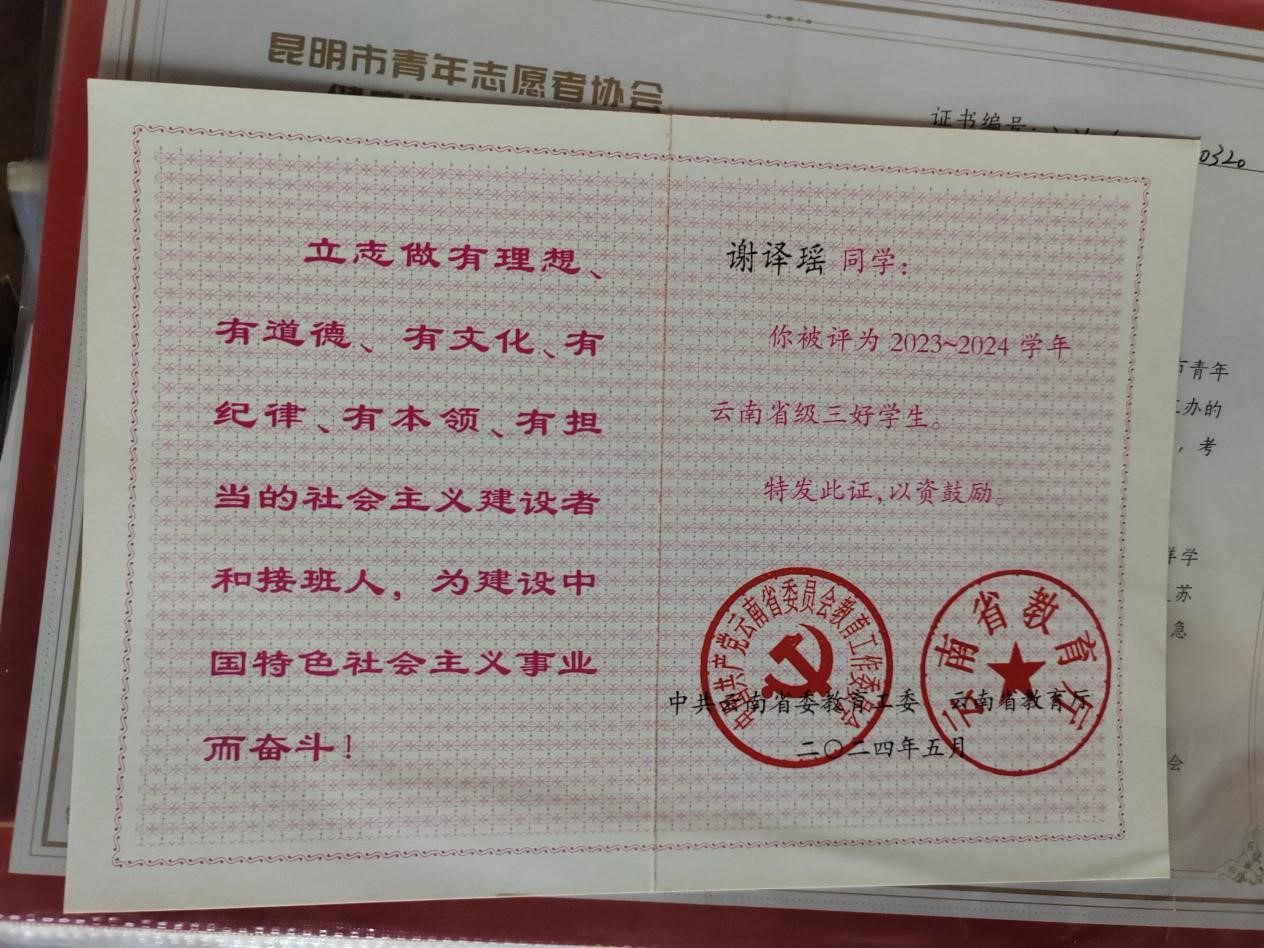 昆明市青年志愿者协会
证书编号:
0320
立志做有理想、
有道德、有文化、有
纪律、有本领、有担
当的社会主义建设者
和接班人，为建设中
国特色社会主义事业
而奋斗！
谢译瑶 同学：
你被评为 2023~2024 学年
云南省级三好学生。
特发此证，以资鼓励。
中国共产党云南省委员会教育工作委员会
云南省教育厅
中共云南省委教育工委 云南省教育厅
二〇二四年五月
市青年
办的
，考
学
苏
急
会